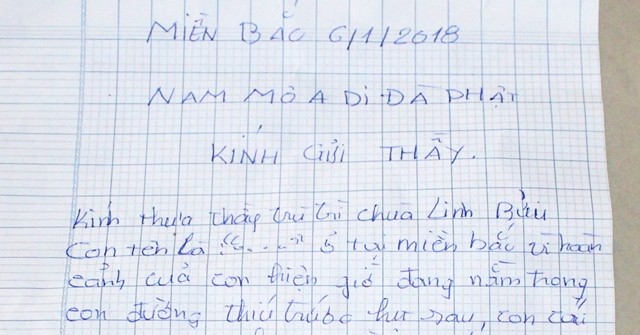 MIỀN BẮC 6/1/2018
NAM MÔ A DI ĐÀ PHẬT
KÍNH GỬI THẦY.
Kính thưa thầy trụ trì chùa Linh Bửu
Con tên là "....." ở tại miền bắc vì hoàn
cảnh của con hiện giờ đang nằm trong
con đường thứ trước hư sau, con cúi